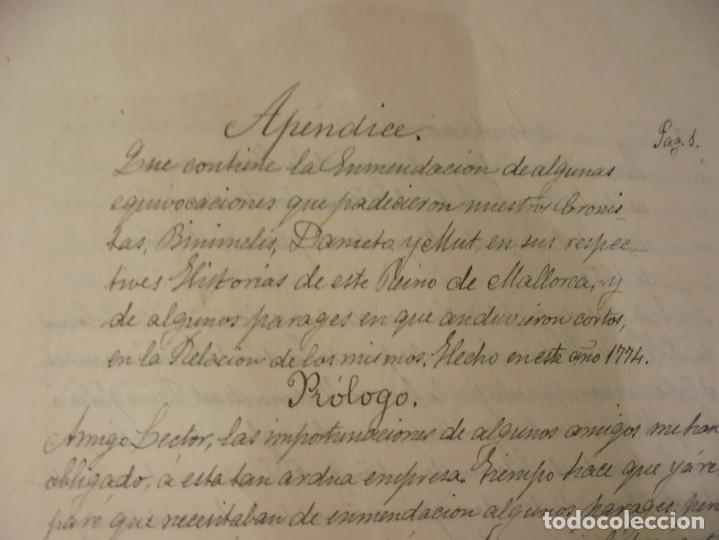 Apéndice.
Pag. 1.
Que contiene la Enmendacion de algunas
equivocaciones que padicieron nuestros Cronis-
tas, Binimelis, Dameto, y Mut, en sus respec-
tives Historias de este Reino de Mallorca, y
de algunos parages en que anduvieron cortos,
en la Relacion de los mismos. Hecho en este año 1774.
Prólogo.
Amigo Lector, las importunaciones de algunos amigos me han
obligado, á esta tan ardua empresa. Tiempo hace que yá re-
paré que necesitaban de enmendacion algunos parages, pero
todocoleccion.net